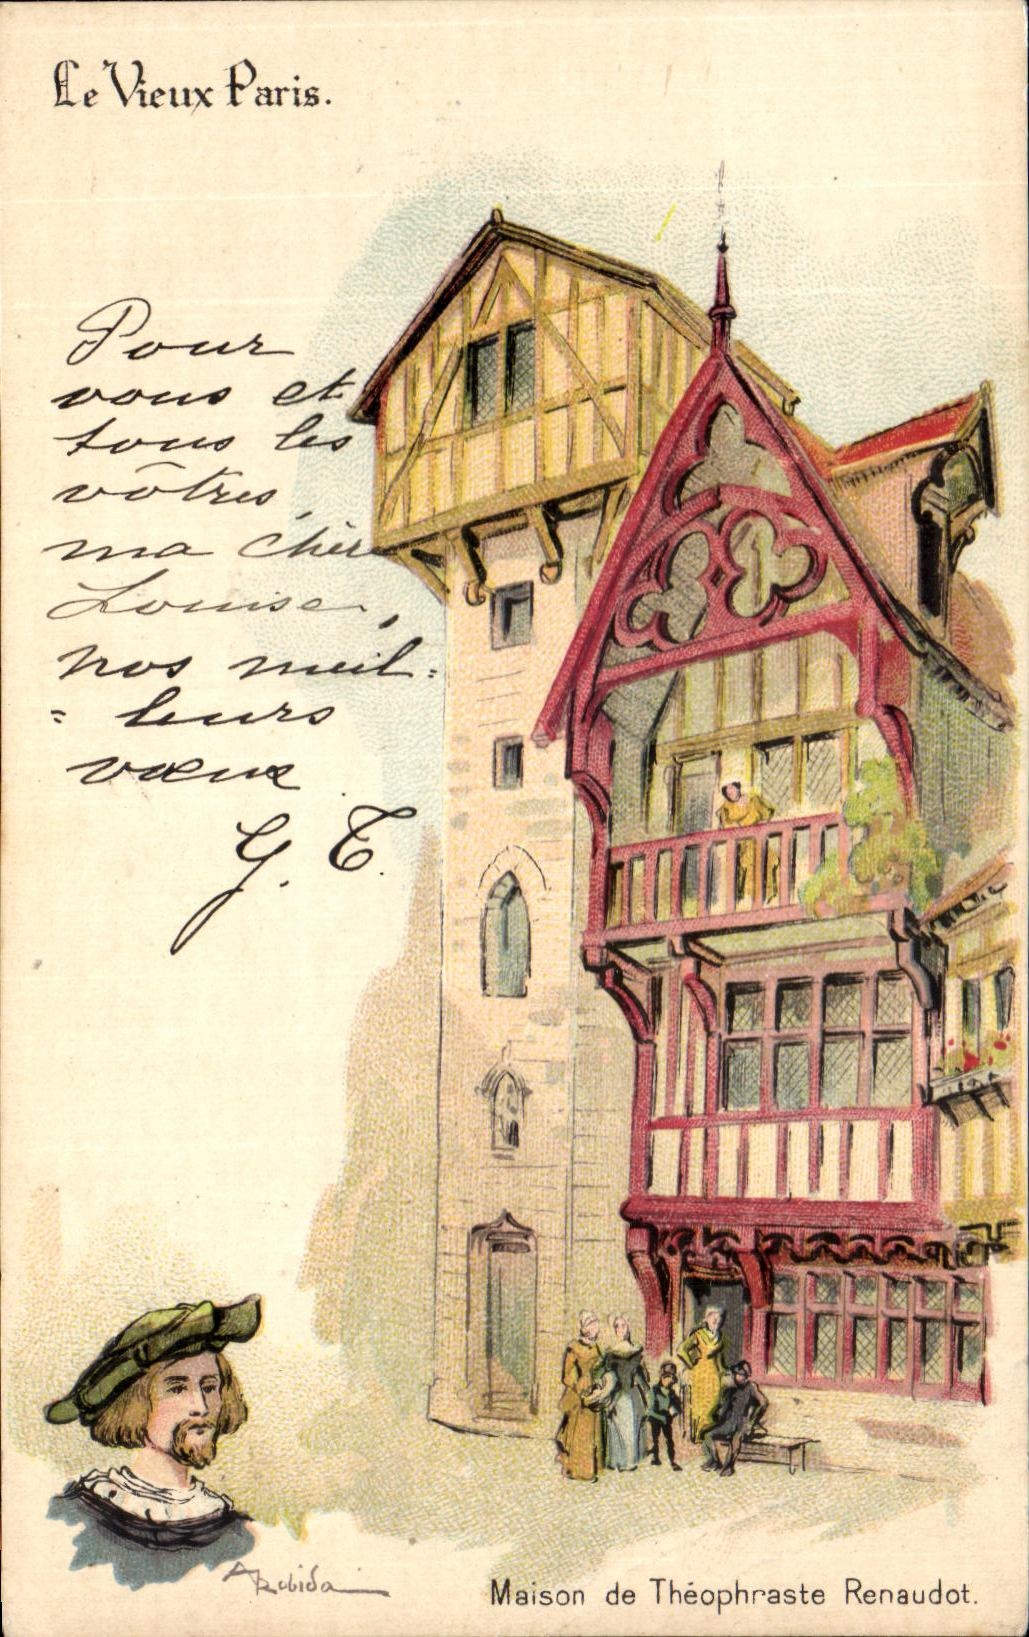 Le Vieux Paris.
Pour
vous et
tous les
vôtres
ma chèr
Louise,
nos meil-
= leurs
vœux
G. T.
A Robida
Maison de Théophraste Renaudot.